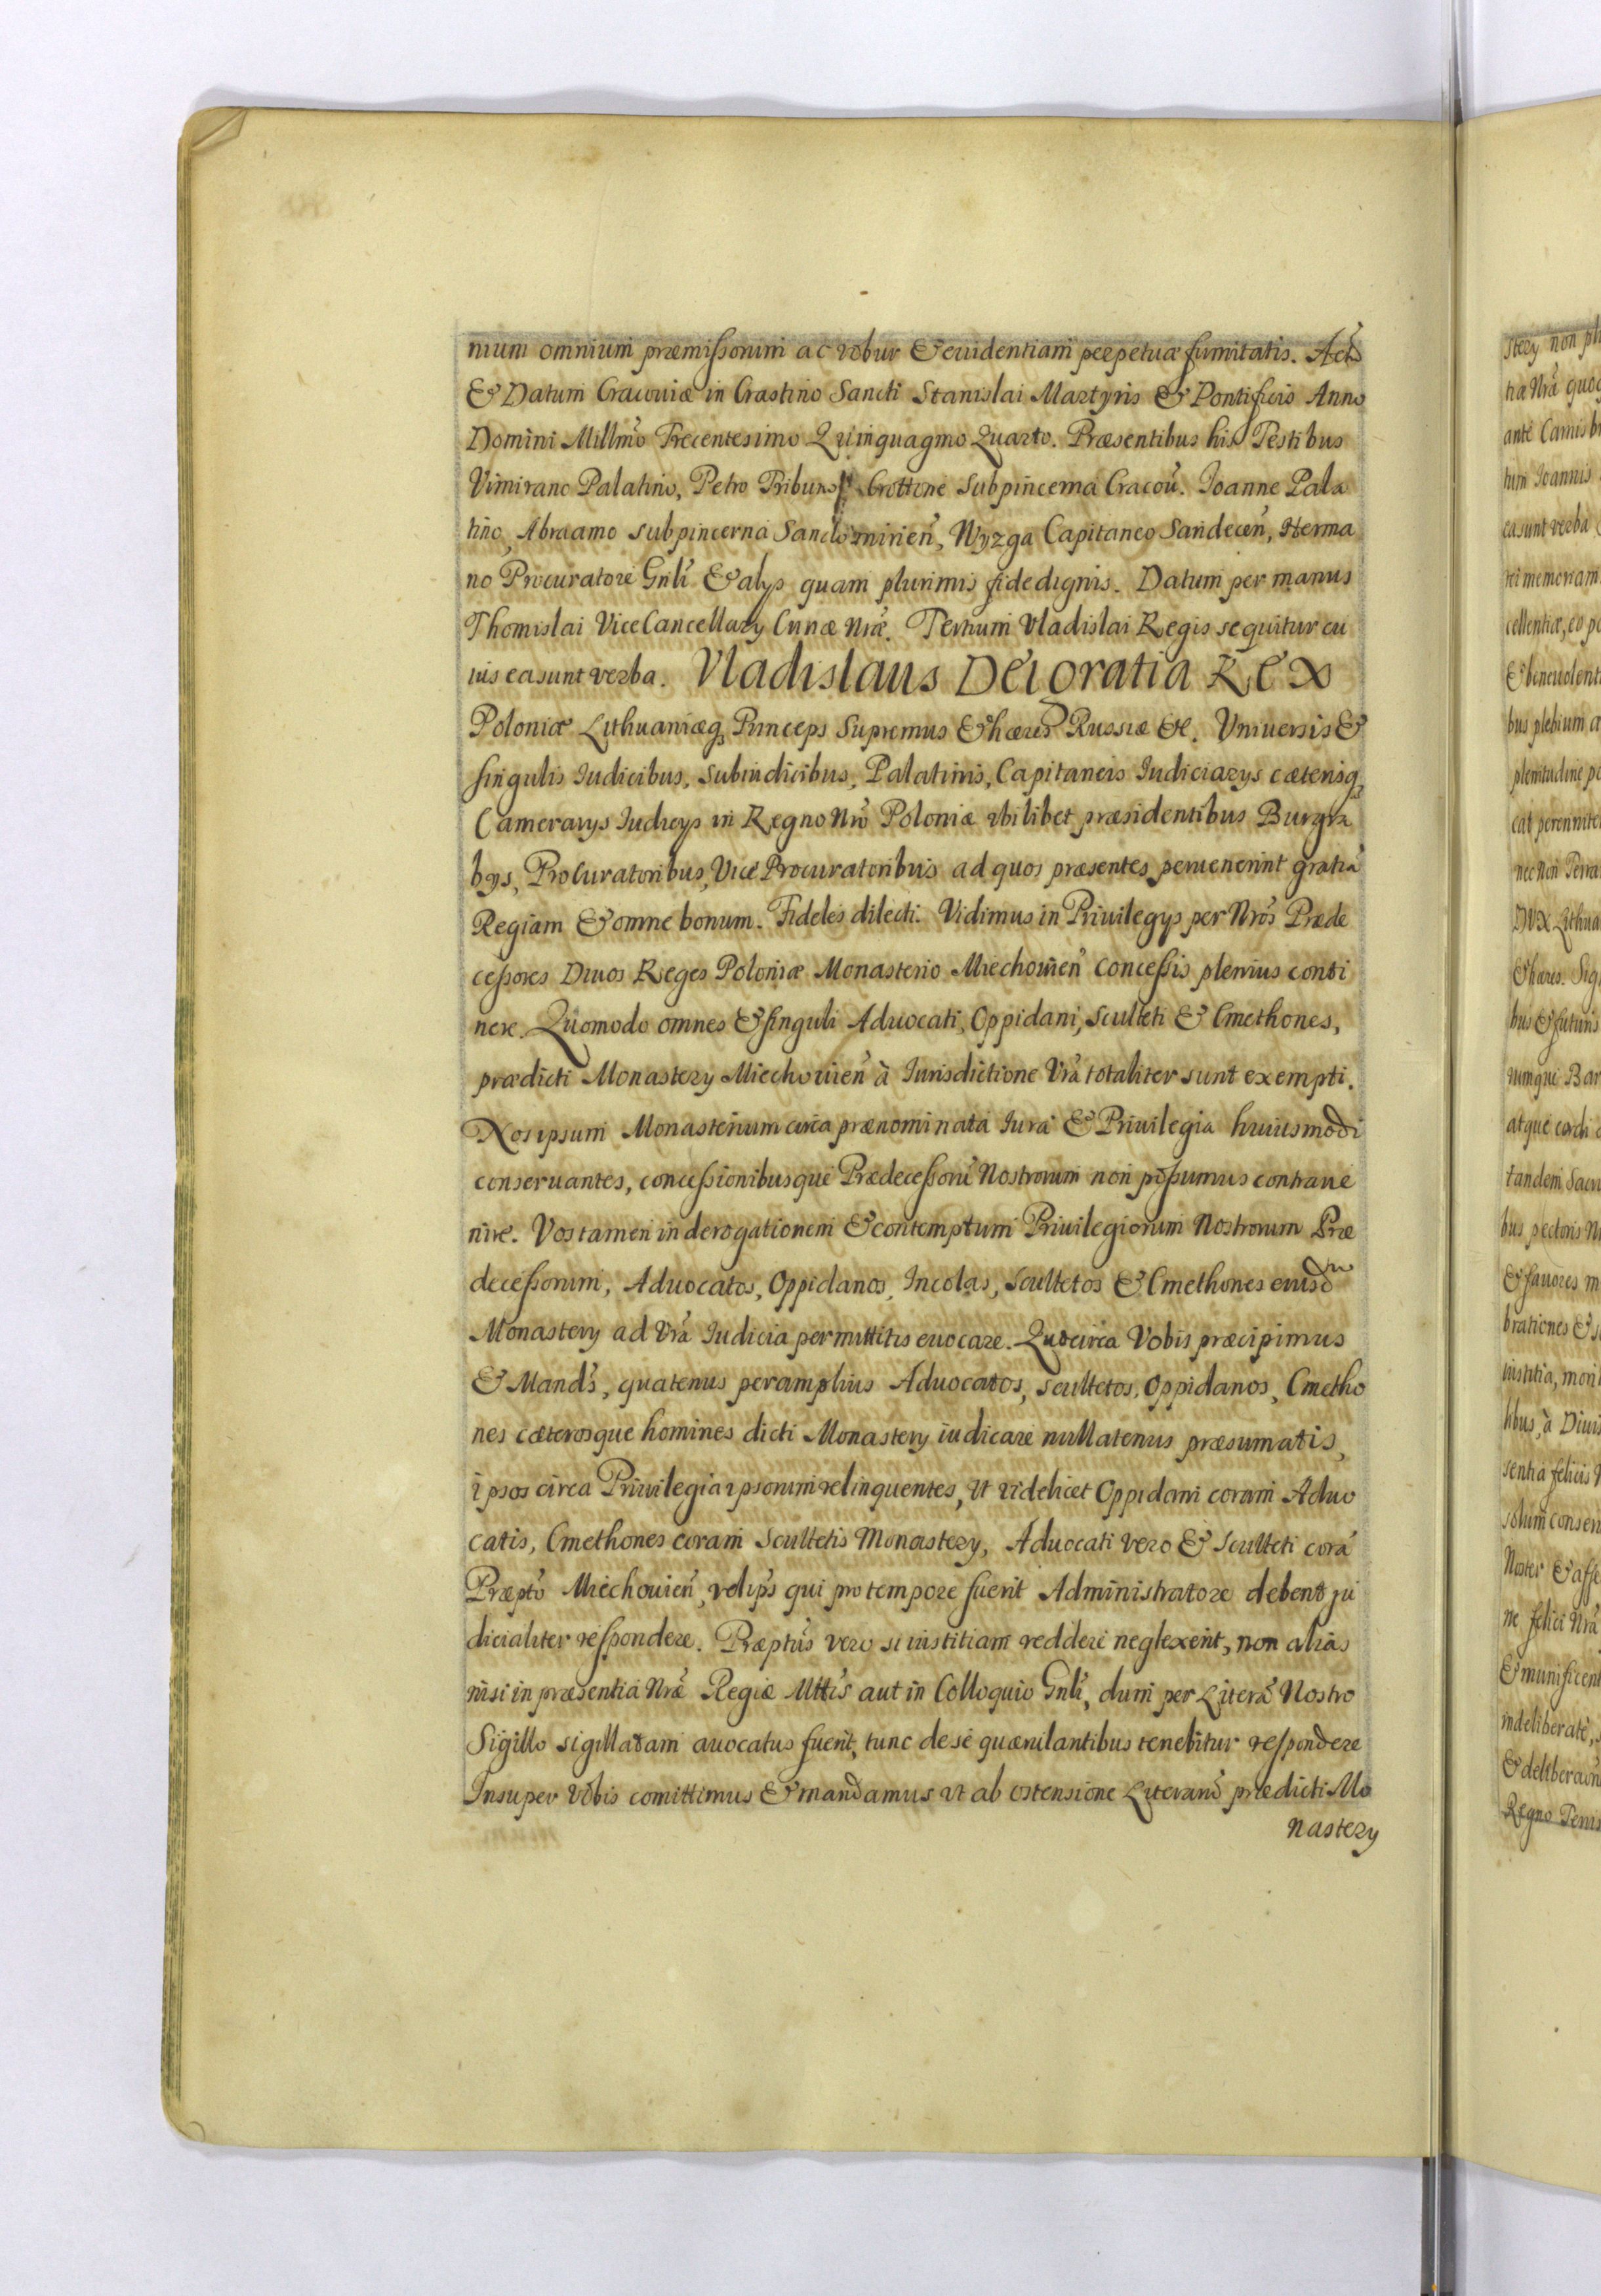 nium omnium præmissorum ac robur & euidentiam perpetuæ firmitatis. Actũ
& Datum Cracouiæ in Crastino Sancti Stanislai Martyris & Pontificis Anno
Domini Millm̃o Trecentesimo Quinquagmo Quarto. Præsentibus his Testibus
Vimirano Palatino, Petro Tribuno, Crottone Subpincerna Cracoũ. Ioanne Pala
tino, Abraamo subpincerna Sandomirieñ, Wyzga Capitaneo Sandeceñ, Herma
no Procuratore Gnłi & alys quam plurimis fidedignis. Datum per manus
Thomislai ViceCancellary Curiæ Nræ. Tertium Vladislai Regis sequitur cu
ius ea sunt verba. Vladislaus Dei Gratia Rex
Poloniæ Lithuaniæq3 Princeps Supremus & hæres Russiæ &c. Vniuersis &
singulis Iudicibus, Subiudicibus, Palatinis, Capitaneis Iudiciarys cæterisq3
Camerarys Iudicys in Regno Nrõ Poloniæ vbilibet præsidentibus Burgra
bys, Procuratoribus, Vice Procuratoribus ad quos præsentes peruenerint gratia
Regiam & omne bonum. Fideles dilecti. Vidimus in Priuilegys per Nrõs Præde
cessores Diuos Reges Poloniæ Monasterio Miechouieñ concessis plenius conti
nere. Quomodo omnes & singuli Aduocati, Oppidani, Sculteti & Cmethones,
prædicti Monastery Miechouieñ à Iurisdictione Vrã totaliter sunt exempti.
Nos ipsum Monasterium circa prænominata Iura & Priuilegia huiusmodi
conseruantes, concessionibusque Prædecessorũ Nostrorum non possumus contraue
nire. Vos tamen in derogationem & contemptum Priuilegiorum Nostrorum Præ
decessorum, Aduocatos, Oppidanos, Incolas, Scultetos & Cmethones eiusdm
Monastery ad Vrã Iudicia permittitis euocare. Quocirca Vobis præcipimus
& Mands, quatenus peramplius Aduocatos, Scultetos, Oppidanos, Cmetho
nes cæterosque homines dicti Monastery iudicare nullatenus præsumatis,
ipsos circa Priuilegia ipsorum relinquentes, vt videlicet Oppidani coram Aduo
catis, Cmethones coram Scultetis Monastery, Aduocati vero & Sculteti corã
Præpto Miechouieñ, vel ips qui pro tempore fuerit Administratore debent ju
dicialiter respondere. Præptus vero si iustitiam reddere neglexerit, non alias
nisi in præsentia Nræ Regiæ Mttis aut in Colloquio Gnłi, dum per Literã Nostro
Sigillo sigillatam auocatus fuerit, tunc de se quærulantibus tenebitur respondere
Insuper Vobis comittimus & mandamus vt ab ostensione Literarũ prædicti Mo
nastery